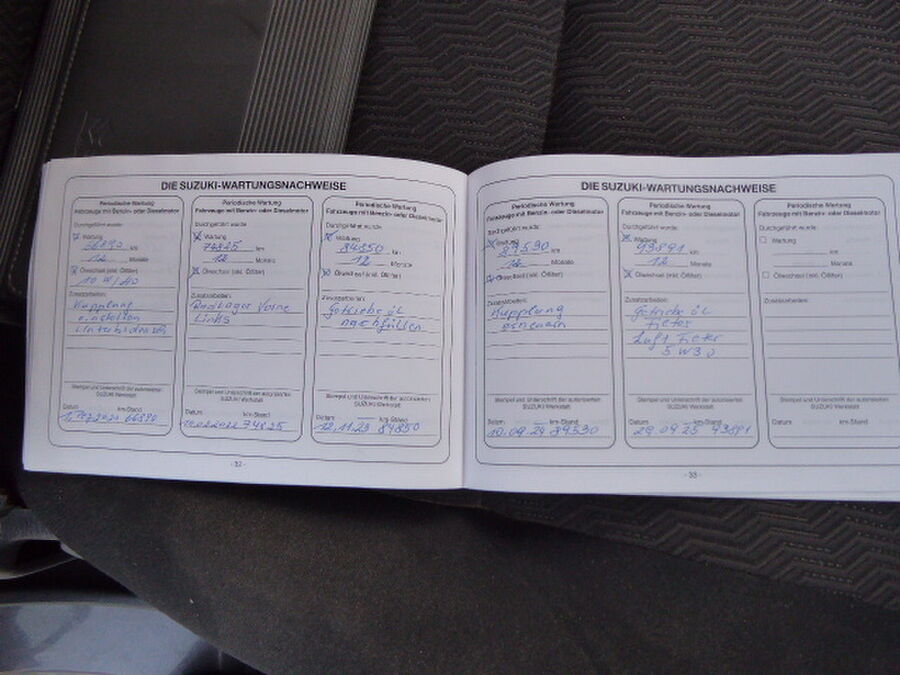 DIE SUZUKI-WARTUNGSNACHWEISE
Periodische Wartung
Fahrzeuge mit Benzin- oder Dieselmotor
Durchgeführt wurde:
Wartung
66890 km
12 Monate
Ölwechsel (inkl. Ölfilter)
10 W/40
Zusatzarbeiten:
Kupplung
einstellen
Unterbodensch
Stempel und Unterschrift der autorisierten
SUZUKI Werkstatt
Datum km-Stand
2020 66890
Periodische Wartung
Fahrzeuge mit Benzin- oder Dieselmotor
Durchgeführt wurde:
Wartung
74825 km
12 Monate
Ölwechsel (inkl. Ölfilter)
Zusatzarbeiten:
Radlager Vorne
Links
Stempel und Unterschrift der autorisierten
SUZUKI Werkstatt
Datum km-Stand
2022 74825
Periodische Wartung
Fahrzeuge mit Benzin- oder Dieselmotor
Durchgeführt wurde:
Wartung
84850 km
12 Monate
Ölwechsel (inkl. Ölfilter)
Zusatzarbeiten:
Getriebe öL
nachfüllen
Stempel und Unterschrift der autorisierten
SUZUKI Werkstatt
Datum km-Stand
12.11.23 84850
- 32 -
DIE SUZUKI-WARTUNGSNACHWEISE
Periodische Wartung
Fahrzeuge mit Benzin- oder Dieselmotor
Durchgeführt wurde:
Wartung
89530 km
12 Monate
Ölwechsel (inkl. Ölfilter)
Zusatzarbeiten:
Kupplung
Stempel und Unterschrift der autorisierten
SUZUKI Werkstatt
Datum km-Stand
10.09.24 89530
Periodische Wartung
Fahrzeuge mit Benzin- oder Dieselmotor
Durchgeführt wurde:
Wartung
93891 km
12 Monate
Ölwechsel (inkl. Ölfilter)
Zusatzarbeiten:
Getriebe öL
Filter
Luft Filter
5 W 30
Stempel und Unterschrift der autorisierten
SUZUKI Werkstatt
Datum km-Stand
29.09.25 93891
Periodische Wartung
Fahrzeuge mit Benzin- oder Dieselmotor
Durchgeführt wurde:
Wartung
km
Monate
Ölwechsel (inkl. Ölfilter)
Zusatzarbeiten:
Stempel und Unterschrift der autorisierten
SUZUKI Werkstatt
Datum km-Stand
- 33 -